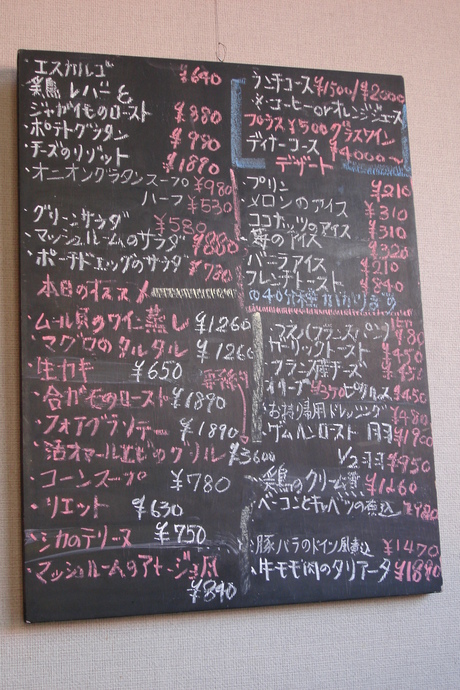 ・エスカルゴ ¥640
・鶏レバーと
ジャガイモのロースト ¥880
・ポテトグラタン ¥980
・チーズのリゾット ¥1890
・オニオングラタンスープ ¥980
ハーフ ¥530
・グリーンサラダ ¥580
・マッシュルームのサラダ ¥880
・ポーチドエッグのサラダ ¥780
・本日のオススメ
・ムール貝のワイン蒸し ¥1260
・マグロのタルタル ¥1260
・生カキ ¥650
・合ガモのロースト ¥1890
・フォアグラソテー ¥1890
・活オマールエビのグリル ¥3600
・コーンスープ ¥780
・リエット ¥630
・シカのテリーヌ ¥750
・マッシュルームのアヒージョ風
¥840
ランチコース ¥1500/¥2000
※コーヒー orオレンジジュース
プラス¥500 グラスワイン
ディナーコース ¥4000〜
・デザート
・プリン ¥210
・メロンのアイス ¥310
・ココナッツのアイス ¥310
・苺のアイス ¥320
・バニラアイス ¥210
・フレンチトースト ¥840
・ガーリックトースト ¥450
・フランス産チーズ
・オリーブ ¥370 ピクルス ¥450
・お持ち帰用ドレッシング ¥480
・ゲームヘンロースト 1羽 ¥1900
1/2羽 ¥950
・鶏のクリーム煮 ¥1260
・ベーコンとキャベツの煮込
・豚バラのドイツ風煮込 ¥1470
・牛モモ肉のタリアータ ¥1890